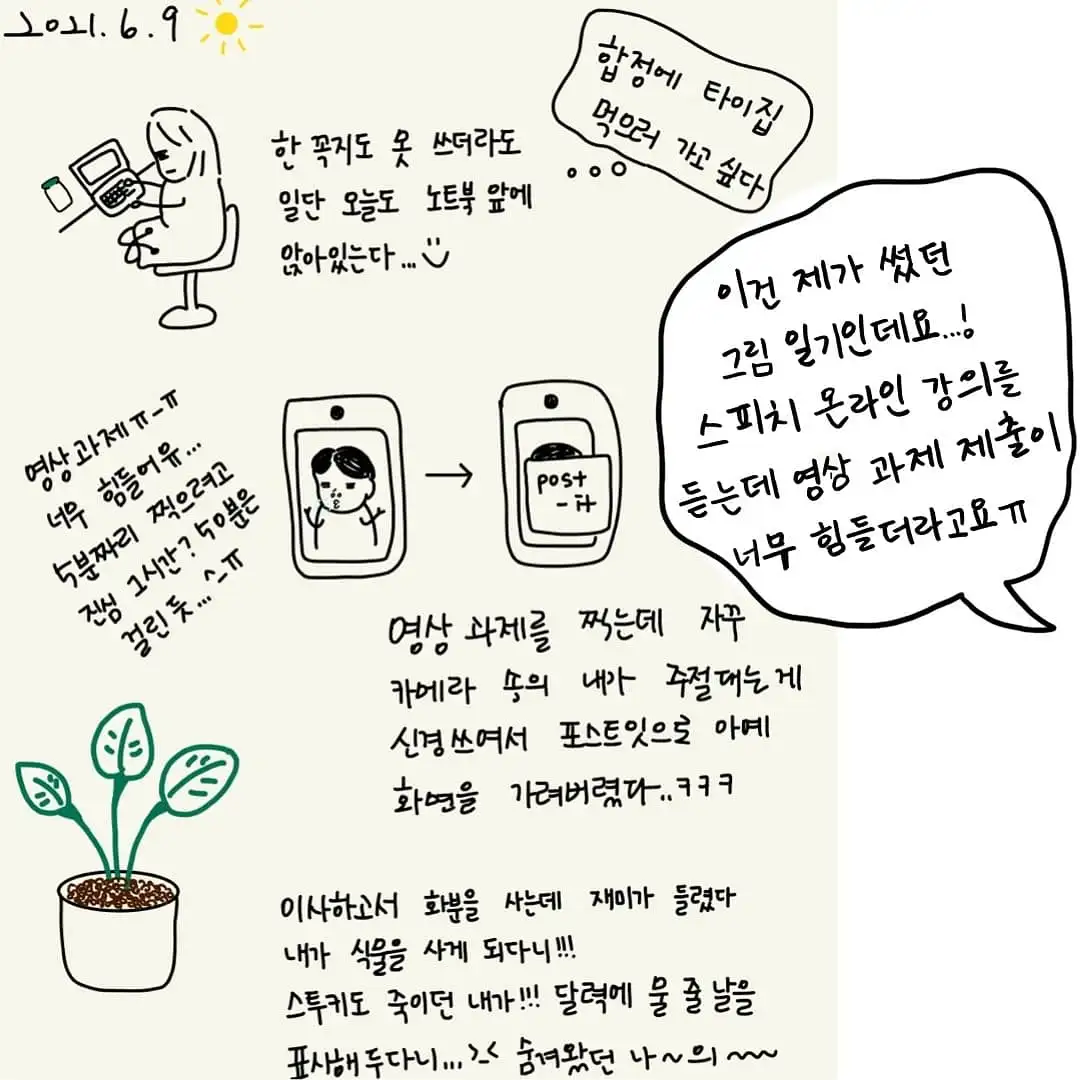 2021. 6. 9
한 꼭지도 못 쓰더라도
일단 오늘도 노트북 앞에
앉아있는다...
합정에 타이집
먹으러 가고 싶다
이건 제가 썼던
그림 일기인데요...!
스피치 온라인 강의를
듣는데 영상 과제 제출이
너무 힘들더라고요ㅠ
영상과제ㅠ_ㅠ
너무 힘들어유...
5분짜리 찍으려고
진심 1시간? 50분은
걸린 듯...^_ㅠ
post
-it
영상 과제를 찍는데 자꾸
카메라 속의 내가 주절대는게
신경쓰여서 포스트잇으로 아예
화면을 가려버렸다..ㅋㅋㅋ
이사하고서 화분을 사는데 재미가 들렸다
내가 식물을 사게 되다니!!!
스투키도 죽이던 내가!!! 달력에 물 줄 날을
표시해두다니...>_< 숨겨왔던 나~의~~~